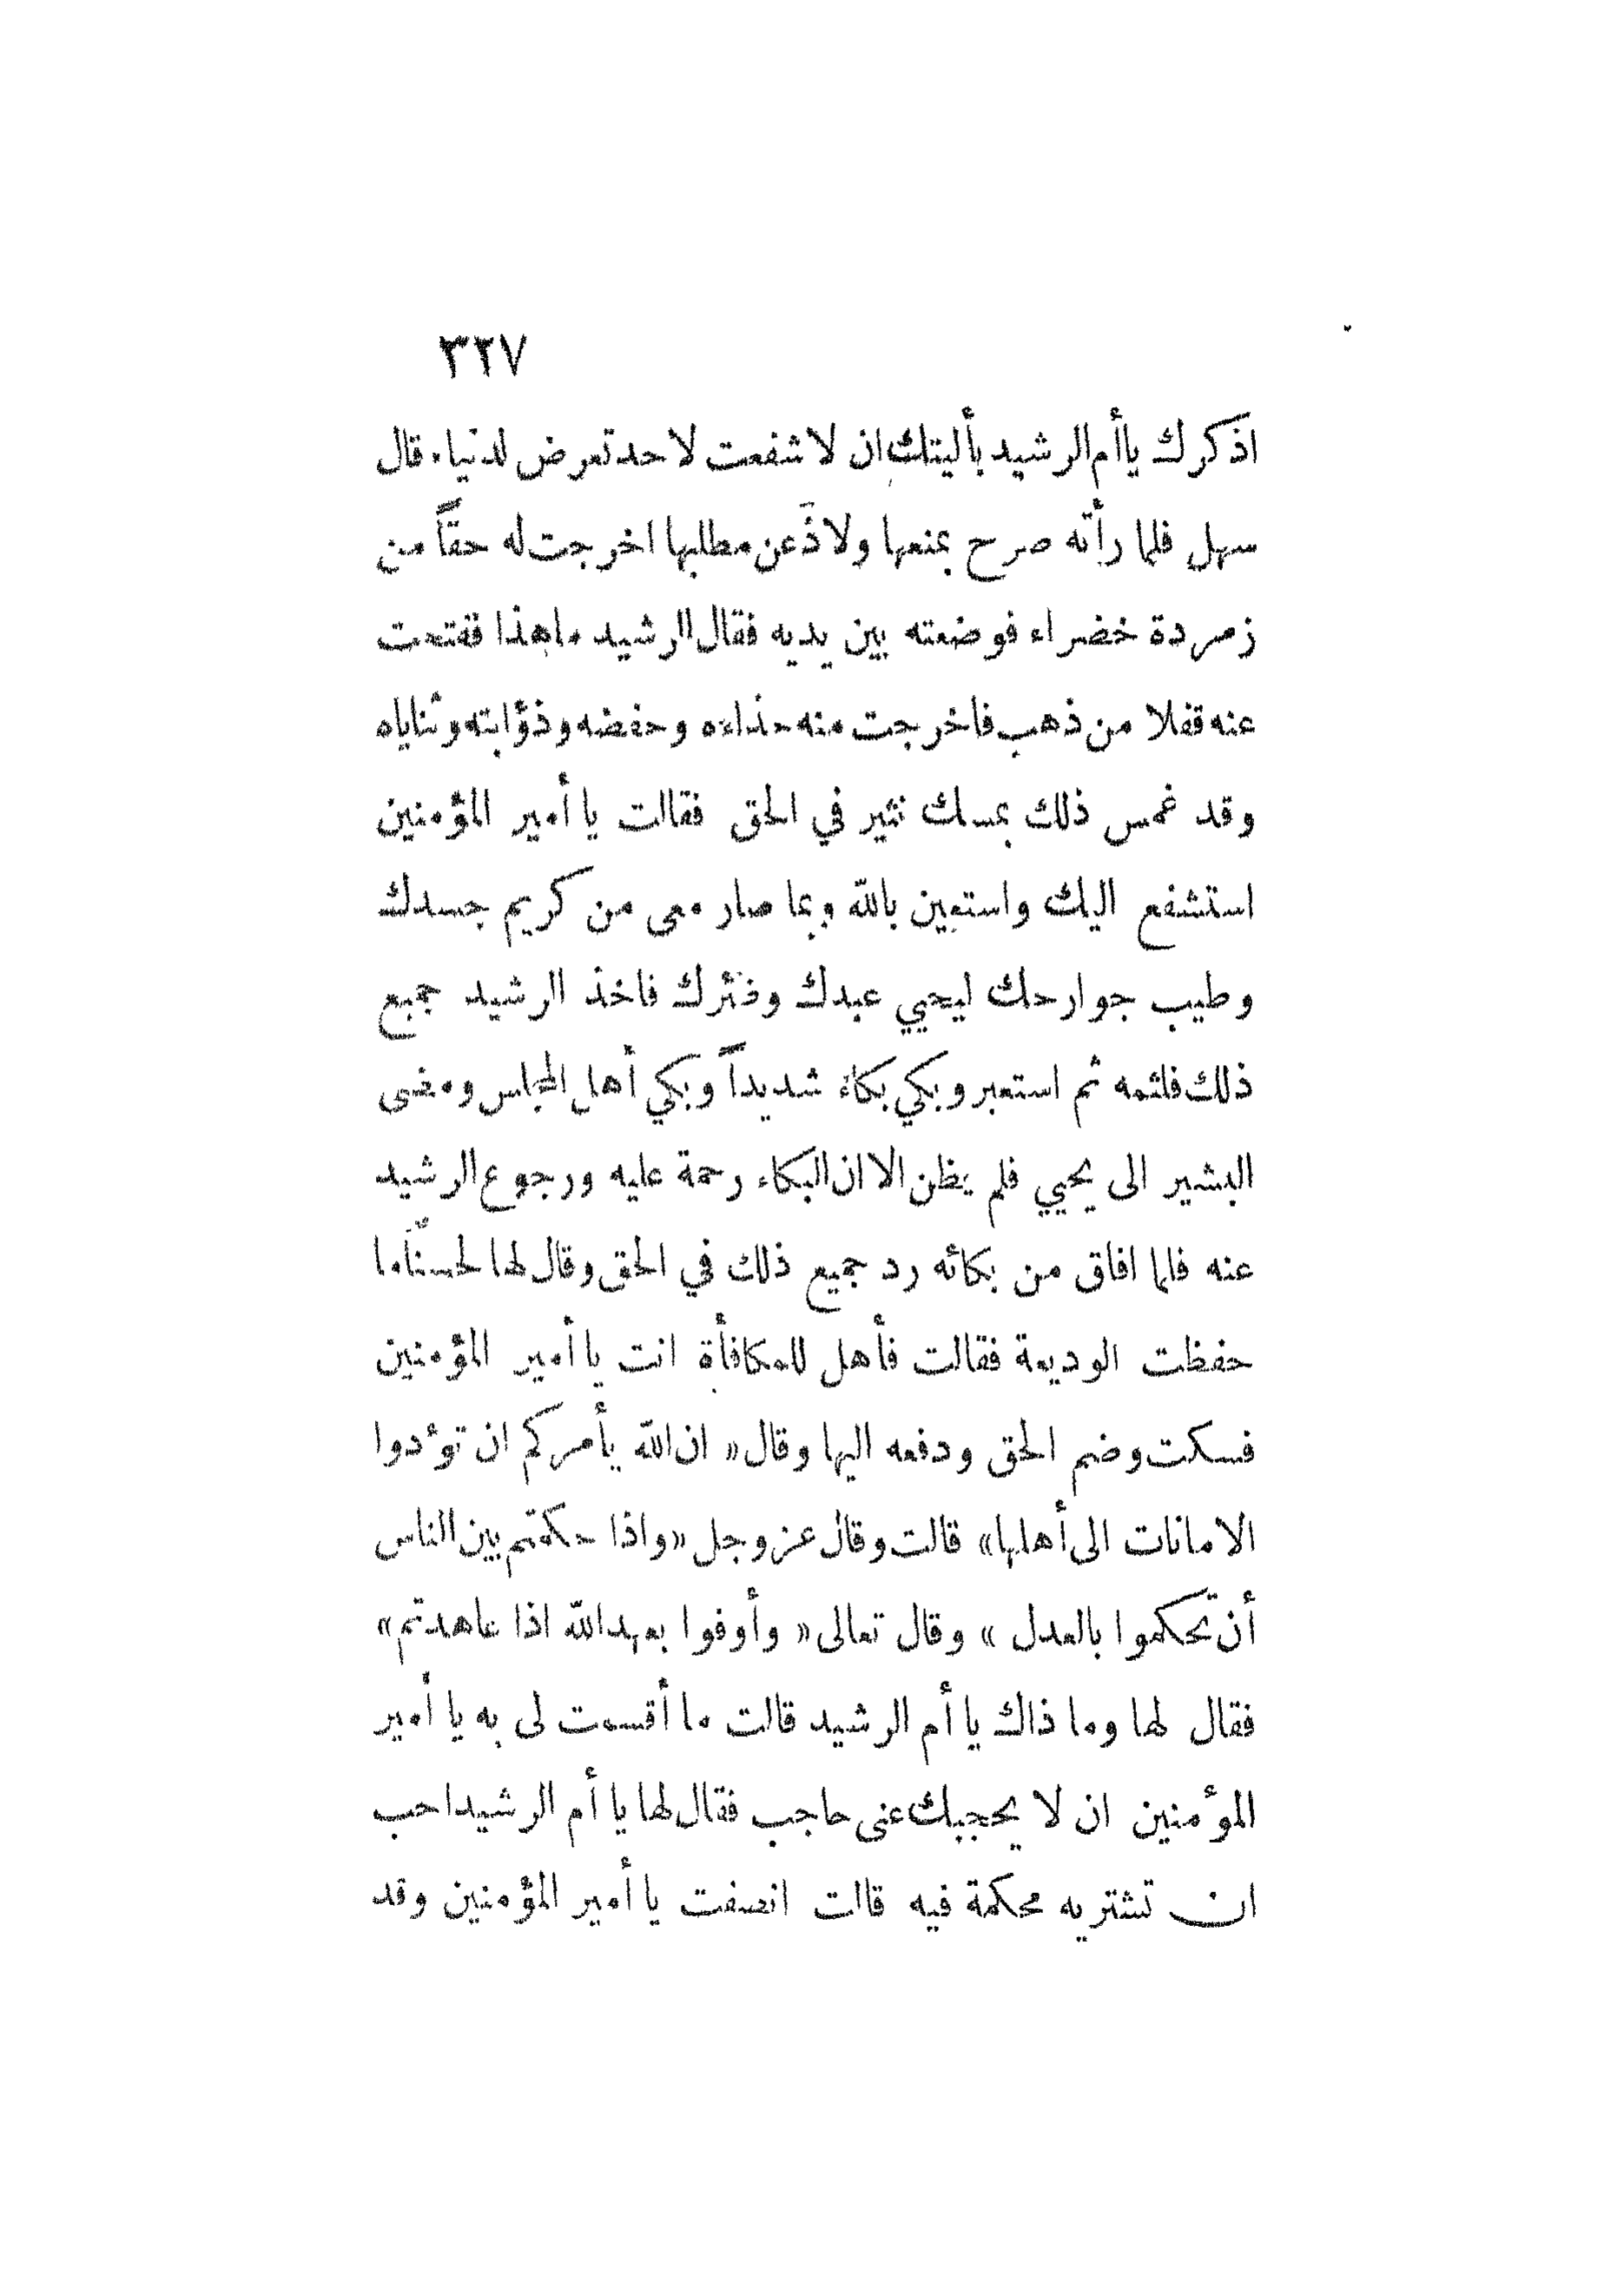 ٣٢٧
اذكرك ياأم الرشيد بأليتك ان لا شفعت لاحد تعرض لدنياه قال
سهل فلما رأته صرح بمنعها ولاذَ عن مطلبها اخرجت له حقاً من
زمردة خضراء فوضعته بين يديه فقال الرشيد ماهذا ففتحت
عنه قفلا من ذهب فاخرجت منه حذاءه وحفضه وذؤابته وثناياه
وقد غمس ذلك بمسك نثير في الحق فقالت يا أمير المؤمنين
استشفع اليك واستعين بالله وبما صار معى من كريم جسدك
وطيب جوارحك ليحيي عبدك وفئرك فاخذ الرشيد جميع
ذلك فلثمه ثم استعبر وبكي بكاءً شديداً وبكي أهل المجلس ومضى
البشير الى يحيي فلم يظن الا ان البكاء رحمة عليه ورجوع الرشيد
عنه فلما افاق من بكائه رد جميع ذلك في الحق وقال لها لحسناً ما
حفظت الوديعة فقالت فأهل للمكافأة انت يا أمير المؤمنين
فسكت وضم الحق ودفعه اليها وقال « ان الله يأمركم ان تؤدوا
الامانات الى أهلها» قالت وقال عز وجل «واذا حكمتم بين الناس
أن تحكموا بالعدل » وقال تعالى « وأوفوا بعهدالله اذا عاهدتم»
فقال لها وما ذاك يا أم الرشيد قالت ما أقسمت لى به يا أمير
المؤمنين ان لا يحجبك عنى حاجب فقال لها يا أم الرشيد احب
ان تشتريه محكمة فيه قالت انصفت يا أمير المؤمنين وقد